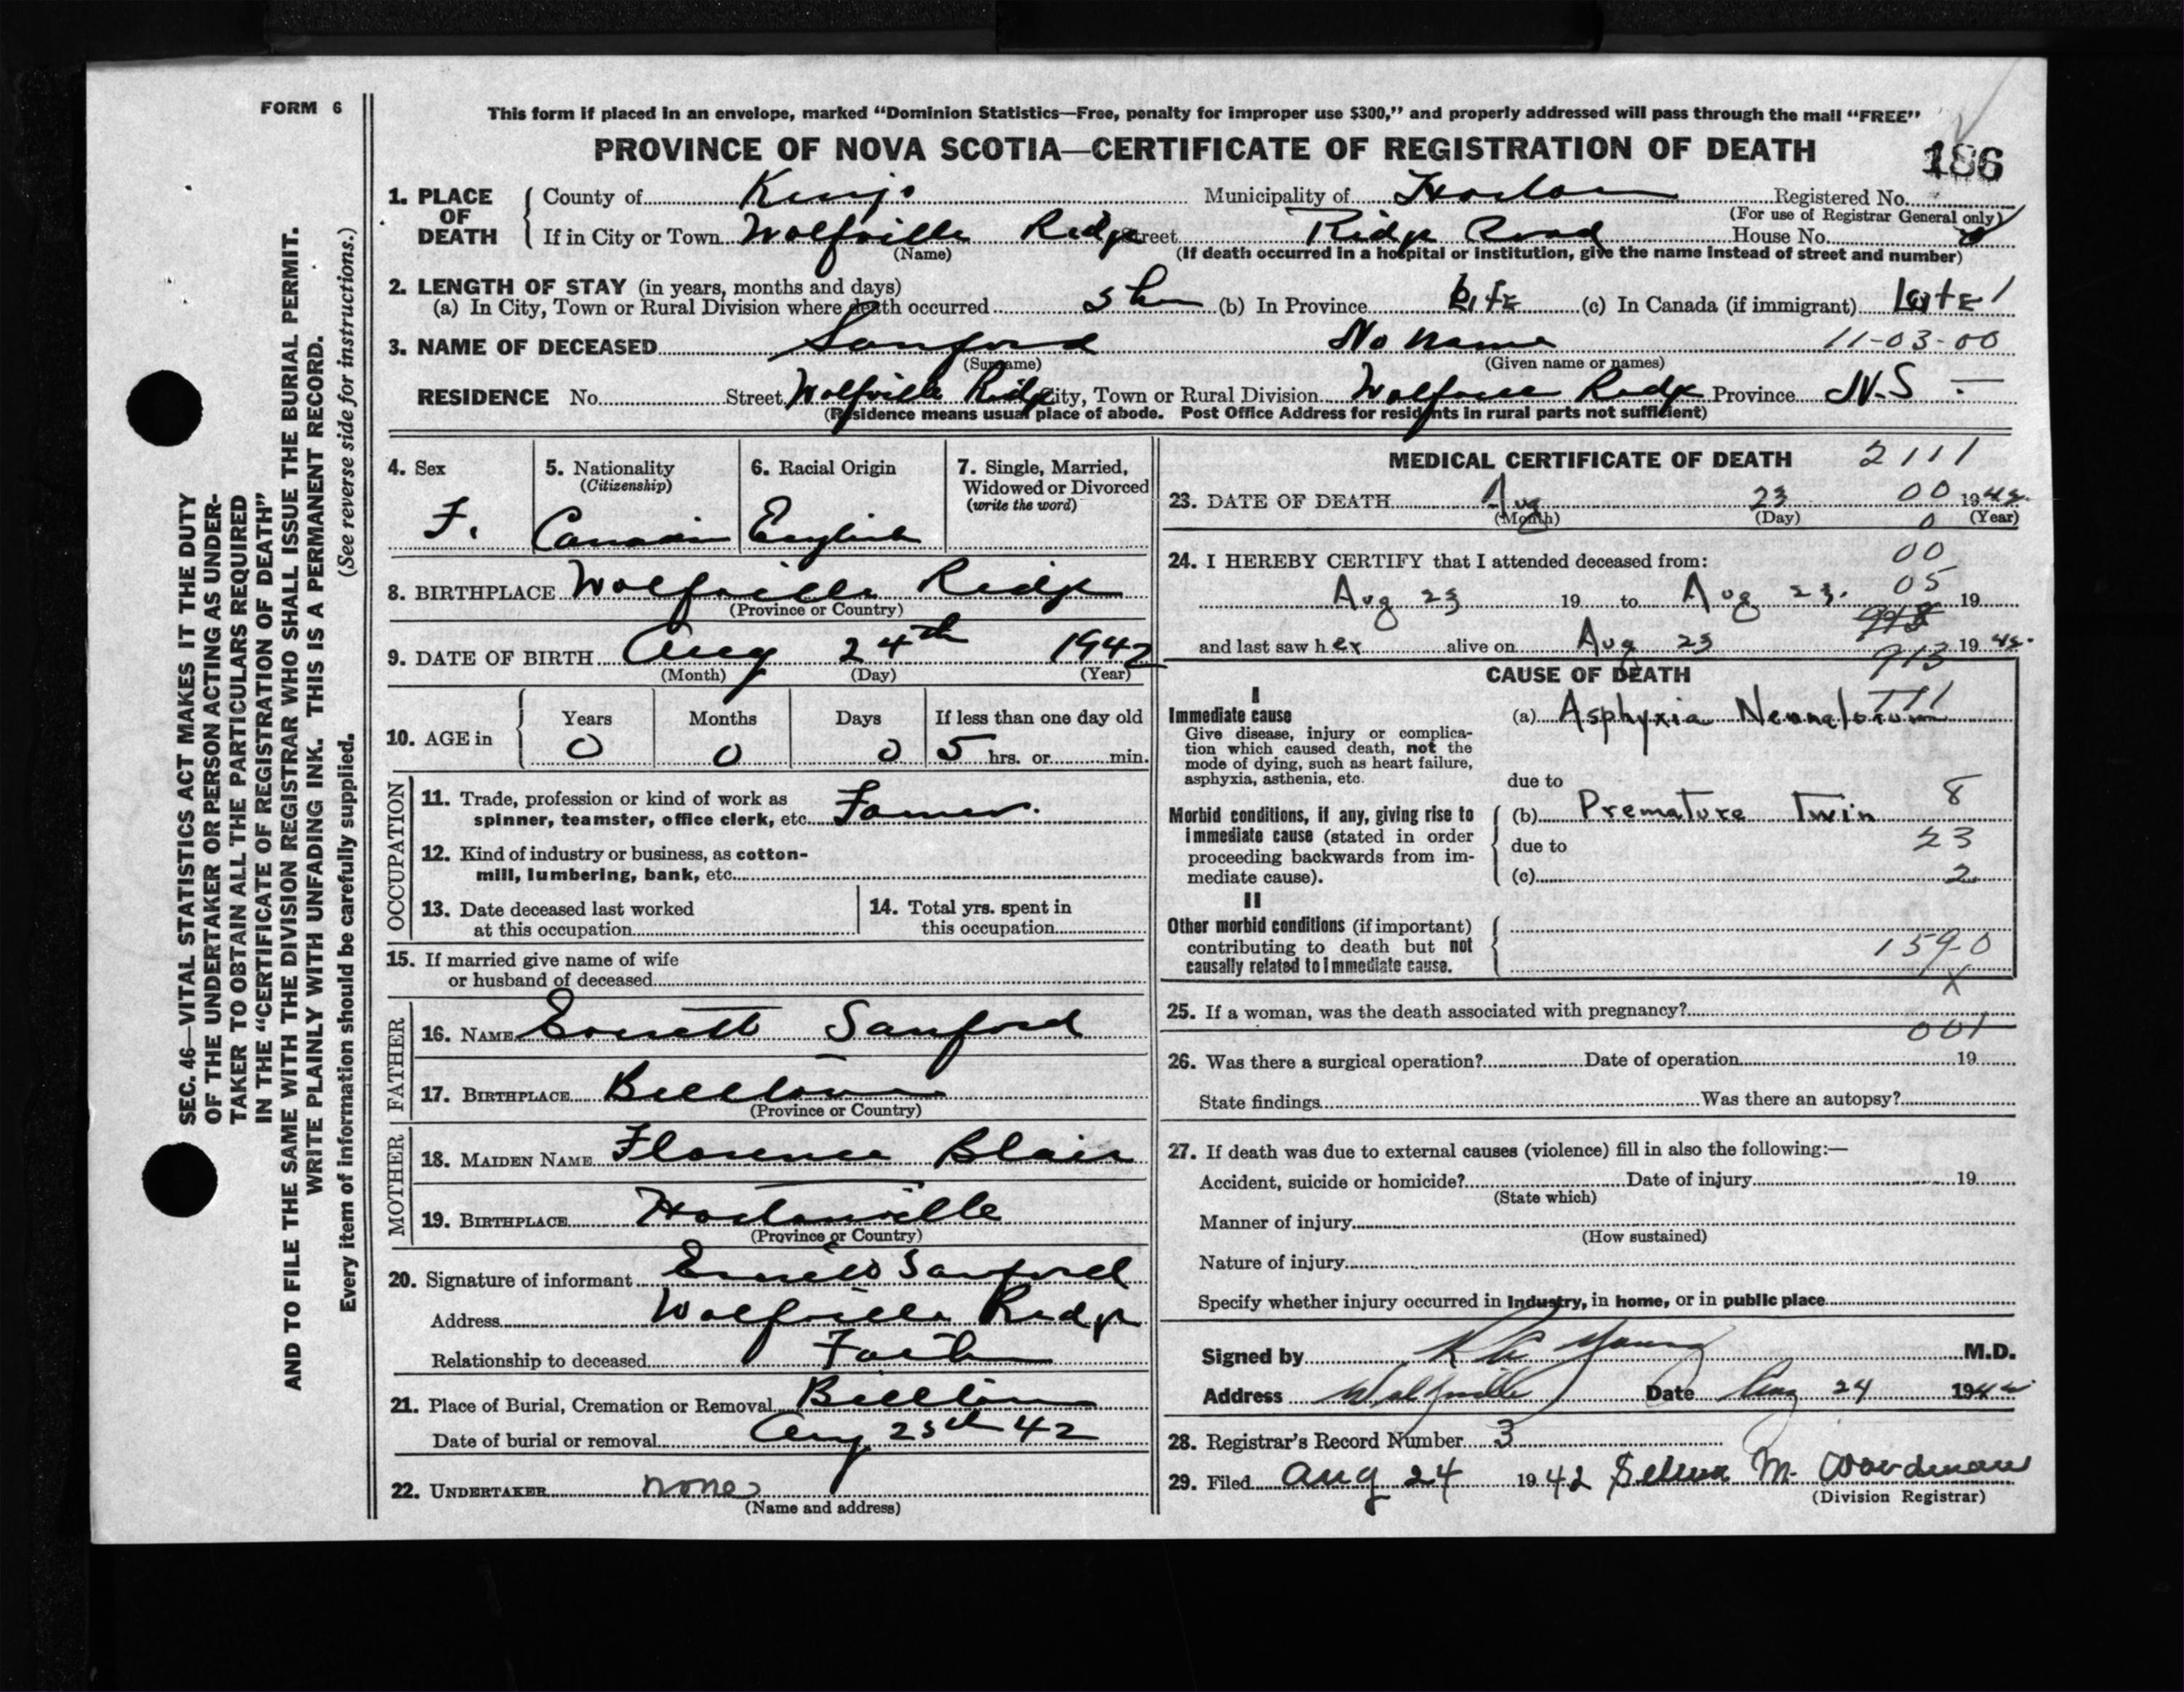 FORM 6
This form if placed in an envelope, marked “Dominion Statistics—Free, penalty for improper use $300,” and properly addressed will pass through the mail “FREE”
PROVINCE OF NOVA SCOTIA—CERTIFICATE OF REGISTRATION OF DEATH
186
1. PLACE OF DEATH
County of Kings Municipality of Horton Registered No.
(For use of Registrar General only)
If in City or Town Wolfville Ridge Street Ridge Road House No.
(Name) (If death occurred in a hospital or institution, give the name instead of street and number)
2. LENGTH OF STAY (in years, months and days)
(a) In City, Town or Rural Division where death occurred 5 hr (b) In Province Life (c) In Canada (if immigrant)
3. NAME OF DECEASED Sanford No Name 11-03-00
(Surname) (Given name or names)
RESIDENCE No. Street Wolfville Ridge City, Town or Rural Division Wolfville Ridge Province N.S —
(Residence means usual place of abode. Post Office Address for residents in rural parts not sufficient)
4. Sex
F.
5. Nationality
(Citizenship)
Canadian
6. Racial Origin
English
7. Single, Married,
Widowed or Divorced
(write the word)
8. BIRTHPLACE Wolfville Ridge
(Province or Country)
9. DATE OF BIRTH Aug 24th 1942
(Month) (Day) (Year)
10. AGE in
Years Months Days If less than one day old
0 0 0 5 hrs. or min.
OCCUPATION
11. Trade, profession or kind of work as
spinner, teamster, office clerk, etc. Farmer.
12. Kind of industry or business, as cotton-
mill, lumbering, bank, etc.
13. Date deceased last worked
at this occupation
14. Total yrs. spent in
this occupation
15. If married give name of wife
or husband of deceased
FATHER
16. NAME Everett Sanford
17. BIRTHPLACE Billtown
(Province or Country)
MOTHER
18. MAIDEN NAME Florence Blair
19. BIRTHPLACE Hortonville
(Province or Country)
20. Signature of informant Everett Sanford
Address Wolfville Ridge
Relationship to deceased Father
21. Place of Burial, Cremation or Removal Billtown
Date of burial or removal Aug 25th 42
22. UNDERTAKER none
(Name and address)
MEDICAL CERTIFICATE OF DEATH 2111
23. DATE OF DEATH Aug 23 00 1942.
(Month) (Day) 0 (Year)
24. I HEREBY CERTIFY that I attended deceased from: 00
05
Aug 23 19 to Aug 23. 19
and last saw her alive on Aug 23 1942.
913
CAUSE OF DEATH
I
Immediate cause
Give disease, injury or complica-
tion which caused death, not the
mode of dying, such as heart failure,
asphyxia, asthenia, etc.
(a) Asphyxia Neonatorum
due to
Morbid conditions, if any, giving rise to
immediate cause (stated in order
proceeding backwards from im-
mediate cause).
(b) Premature Twin 8
due to 23
(c) 2
II
Other morbid conditions (if important)
contributing to death but not
causally related to immediate cause.
159-0
X
25. If a woman, was the death associated with pregnancy?
001
26. Was there a surgical operation? Date of operation 19
State findings Was there an autopsy?
27. If death was due to external causes (violence) fill in also the following:—
Accident, suicide or homicide? Date of injury 19
(State which)
Manner of injury
(How sustained)
Nature of injury
Specify whether injury occurred in Industry, in home, or in public place
Signed by Young M.D.
Address Wolfville Date Aug 24 1942
28. Registrar's Record Number 3
29. Filed Aug 24 1942 Selina M. Woodman
(Division Registrar)
SEC. 46—VITAL STATISTICS ACT MAKES IT THE DUTY
OF THE UNDERTAKER OR PERSON ACTING AS UNDER-
TAKER TO OBTAIN ALL THE PARTICULARS REQUIRED
IN THE “CERTIFICATE OF REGISTRATION OF DEATH”
AND TO FILE THE SAME WITH THE DIVISION REGISTRAR WHO SHALL ISSUE THE BURIAL PERMIT.
WRITE PLAINLY WITH UNFADING INK. THIS IS A PERMANENT RECORD.
Every item of information should be carefully supplied. (See reverse side for instructions.)